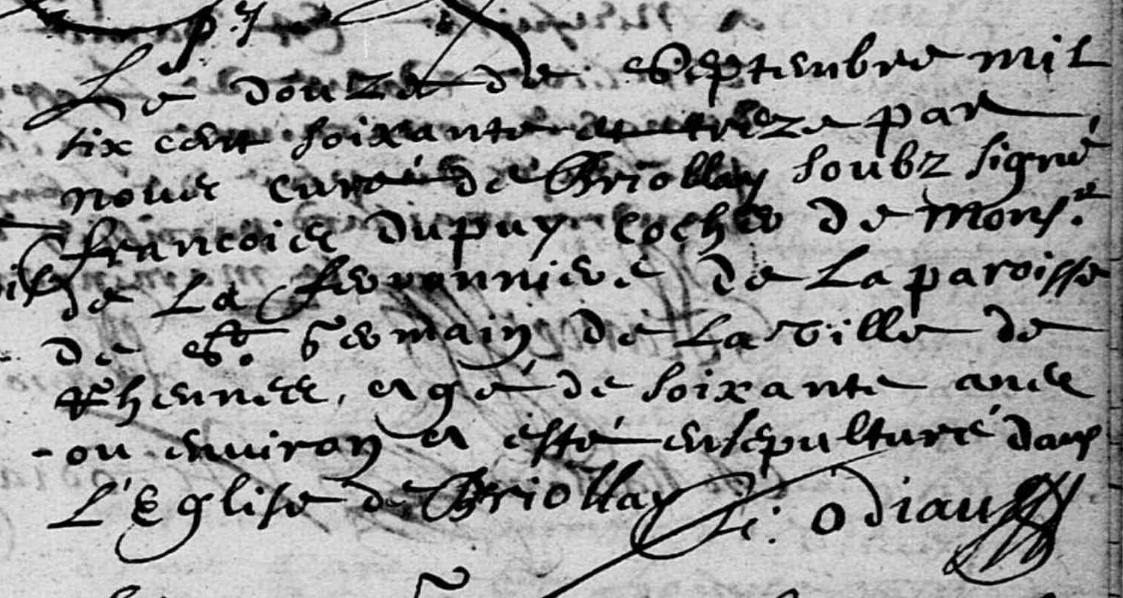 Le douze de septembre mil
six cent soixante et treze par
nous curé de Briollay soubz signé
francois dupuy cocher de Monsr
de La feronniere de La paroisse
de St. Germain de La ville de
Rhennes, agé de soixante ans
ou environ a esté ensepulturé dans
L'Eglise de Briollay